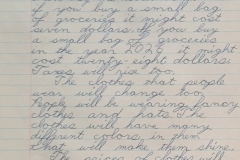 if you buy a small bag
of groceries it might cost
seven dollars. If you buy
a small bag of groceries
in the year 2024 it might
cost twenty-eight dollars.
Taxes will rise too.
The clothes that people
wear will change too.
People will be wearing fancy
clothes and hats. The
clothes will have many
different colors in them
that will make them shine.
The prices of clothes will